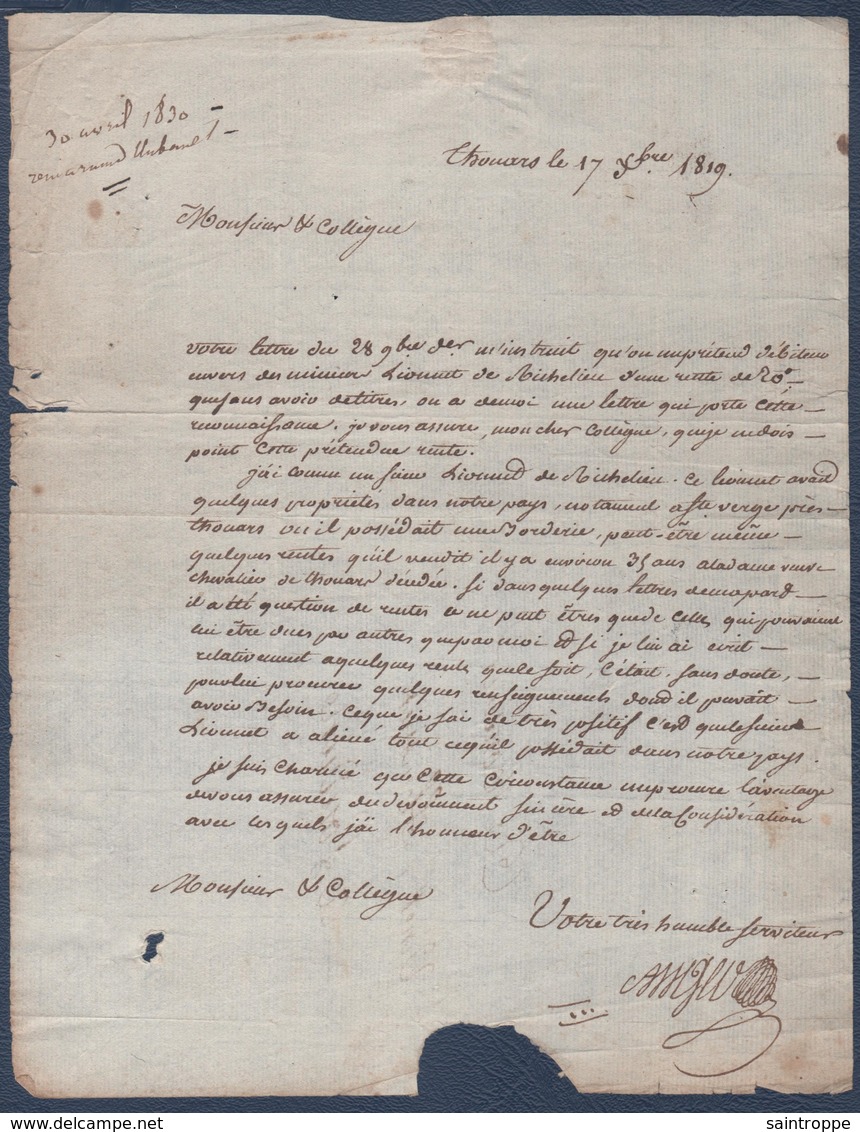 30 avril 1830 -
Thouars le 17 Xbre 1819.
Monsieur & Collègue
votre lettre du 28 9bre der m'instruit qu'on me prétend débiteur
envers des mineurs Lionnet de Richelieu d'une rente de 20#
que sans avoir de titres, on a de moi une lettre qui porte cette
reconnaissance. je vous assure, mon cher Collègue, que je ne dois
point cette prétendue rente.
j'ai connu un sieur Lionnet de Richelieu. ce Lionnet avait
quelques propriétés dans notre pays, notamment a Ste verge près
thouars ou il possédait une Borderie, peut-être même
quelques rentes qu'il vendit il y a environ 35 ans a la dame veuve
chevalier de thouars décédée. Si dans quelques lettres de ma part
il a été question de rentes ce ne peut êtres que de celles qui pouvaient
lui être dues par autres que par moi et si je lui ai ecrit
relativement a quelques rentes que ce soit, C'était, sans doute,
pour lui procurer quelques renseignements dont il pouvait
avoir Besoin. Ce que je sai de très positif c'est que le sieur
Lionnet a aliené tout ce qu'il possédait dans notre pays.
je suis Charmé que Cette circonstance me procure l'avantage
de vous assurer du dévoûment sincère et de la Considération
avec lesquels j'ai l'honneur d'être
Monsieur & Collègue
Votre très humble serviteur
saintroppe